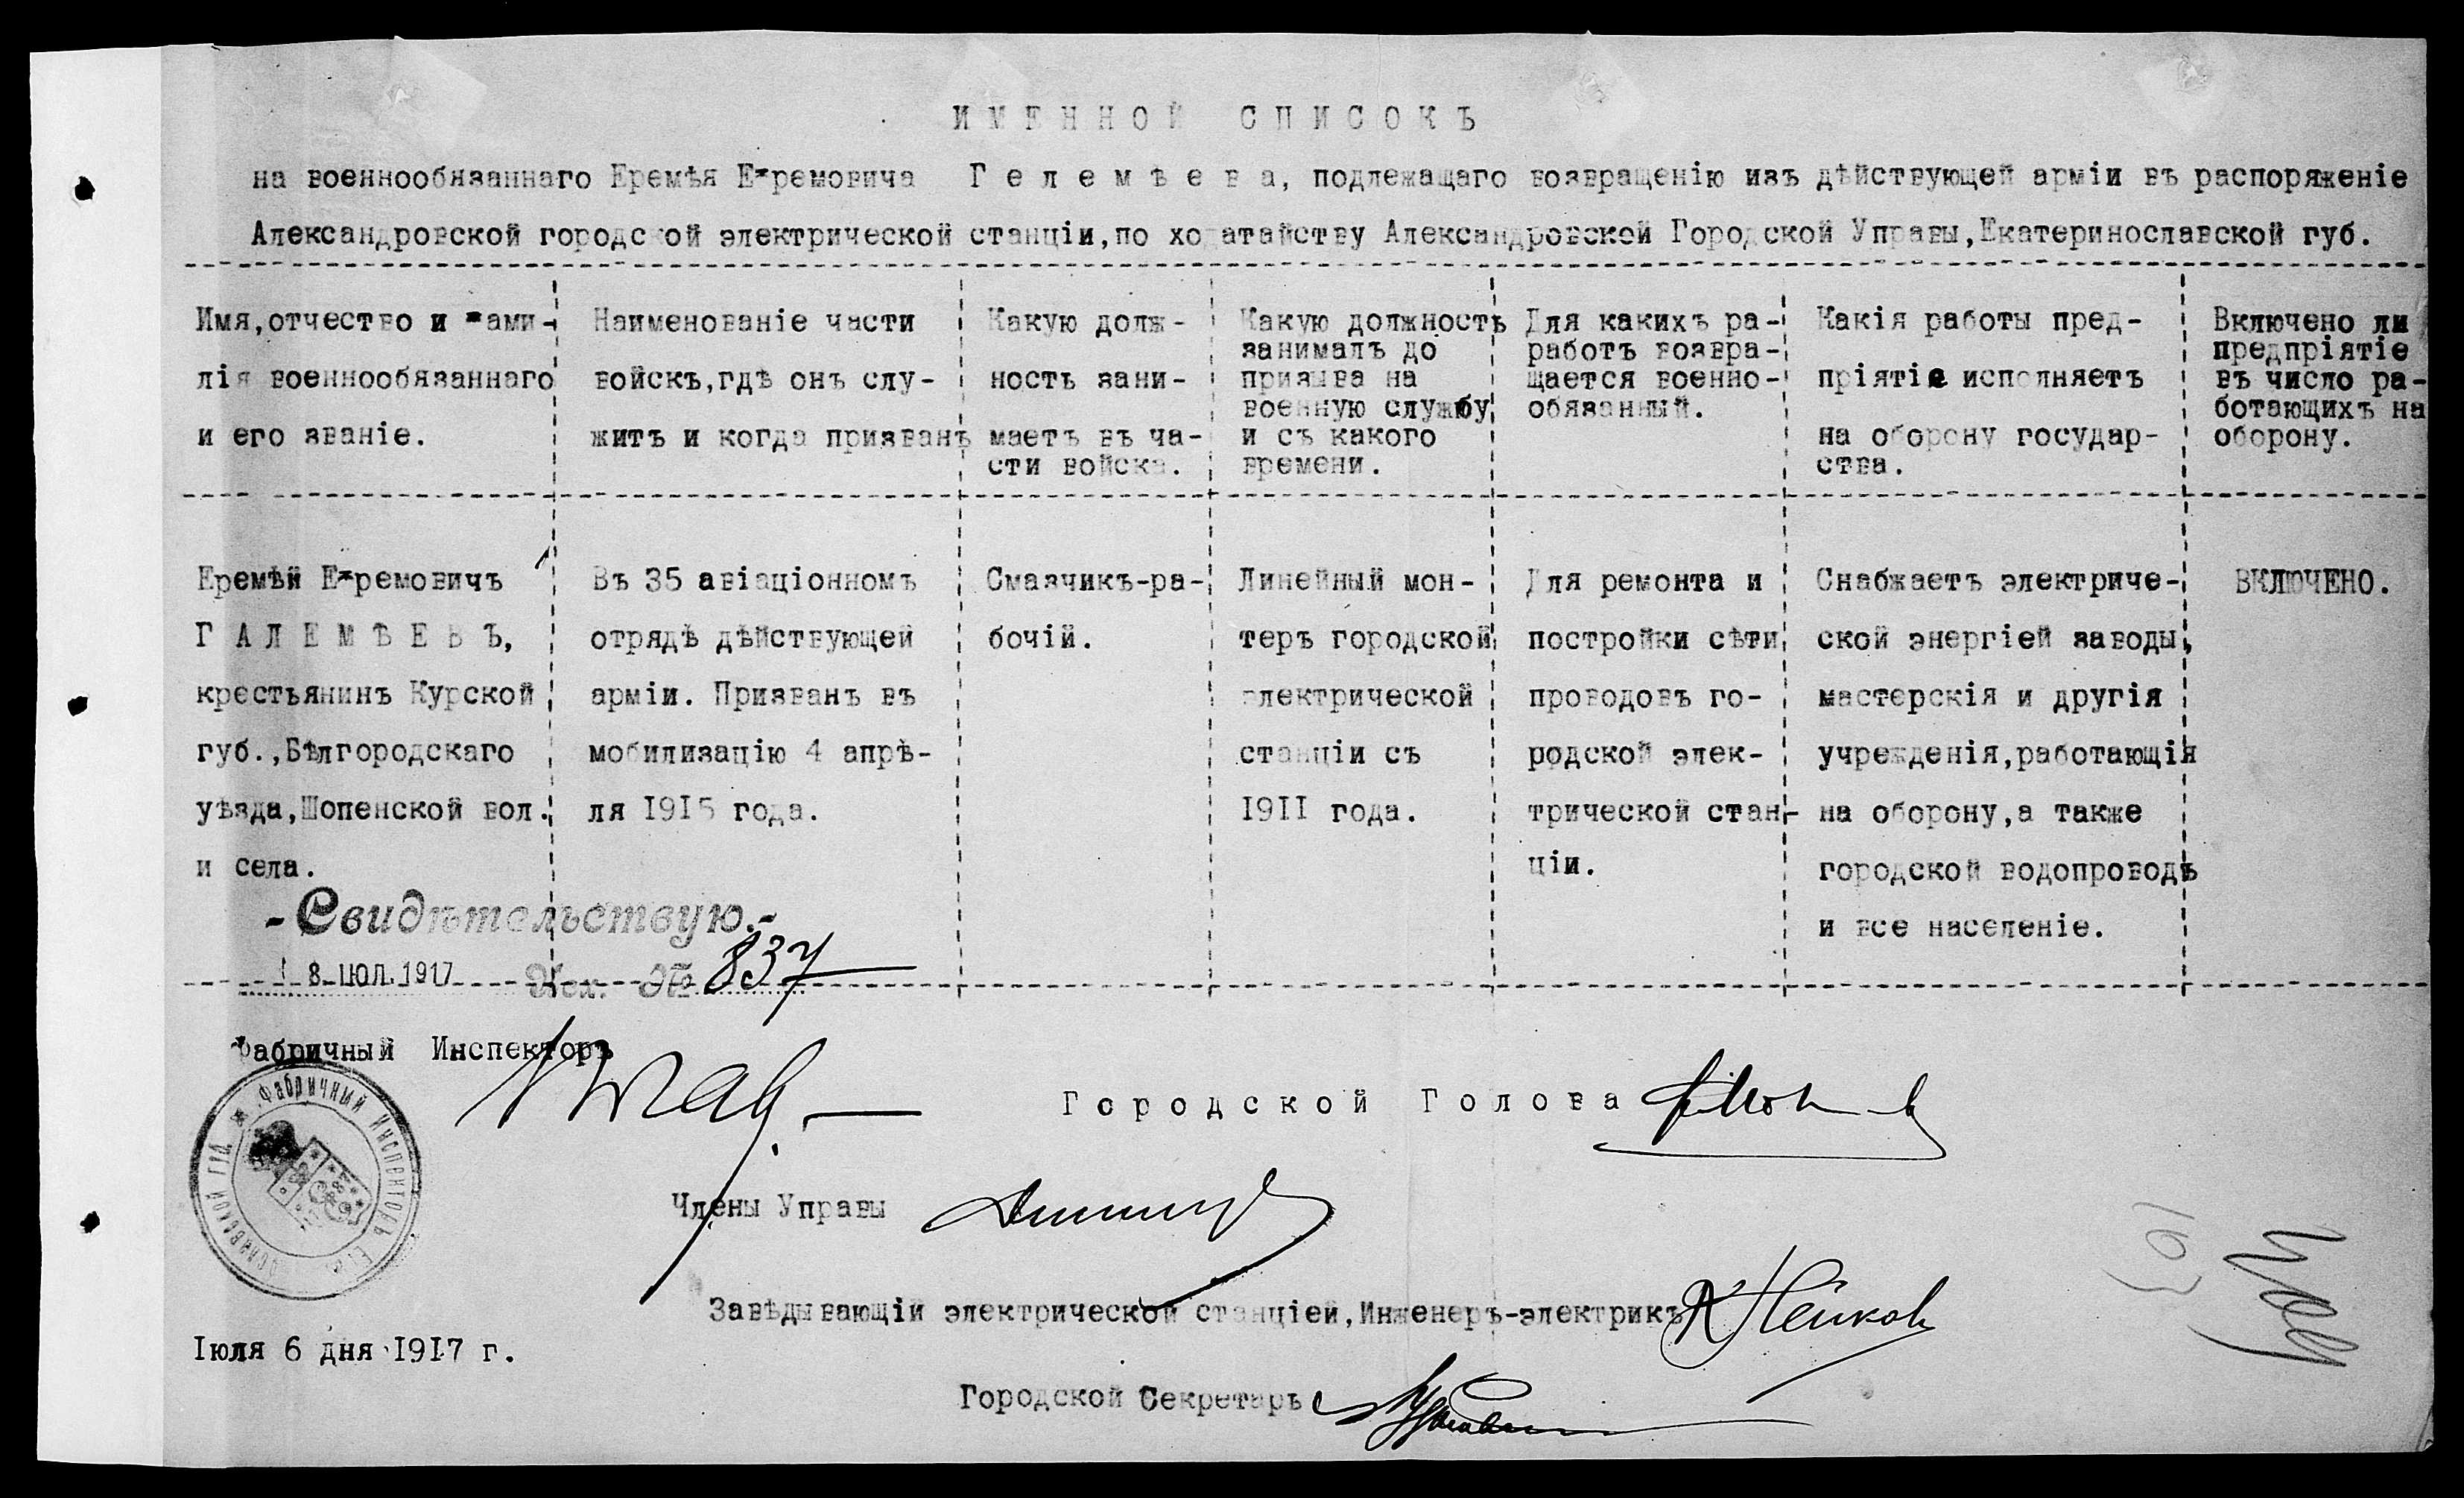 ИМЕННОЙ СПИСОКЪ
на военнообязаннаго Еремѣя Е*ремовича Гелемѣева, подлежащаго возвращенію изъ дѣйствующей арміи въ распоряженіе
Александровской городской электрической станціи,по ходатайству Александровской Городской Управы,Екатеринославской губ.
Имя,отчество и *ами-
лія военнообязаннаго
и его званіе.
Наименованіе части
войскъ,гдѣ онъ слу-
житъ и когда призванъ
Какую долж-
ность зани-
маетъ въ ча-
сти войска.
Какую должность
занималъ до
призыва на
военную службу
и съ какого
времени.
Для какихъ ра-
работъ возвра-
щается военно-
обязанный.
Какія работы пред-
пріятіе исполняетъ
на оборону государ-
ства.
Включено ли
предпріятіе
въ число ра-
ботающихъ на
оборону.
Еремѣй Е*ремовичъ
ГАЛЕМѢЕВЪ,
крестьянинъ Курской
губ.,Бѣлгородскаго
уѣзда,Шопенской вол.
и села.
Въ 35 авіаціонномъ
отрядѣ дѣйствующей
арміи. Призванъ въ
мобилизацію 4 апрѣ-
ля 1915 года.
Смазчикъ-ра-
бочій.
Линейный мон-
теръ городской
электрической
станціи съ
1911 года.
Для ремонта и
постройки сѣти
проводовъ го-
родской элек-
трической стан-
ціи.
Снабжаетъ электриче-
ской энергіей заводы,
мастерскія и другія
учрежденія,работающія
на оборону,а также
городской водопроводъ
и все населеніе.
ВКЛЮЧЕНО.
-Свидѣтельствую.-
8 ІЮЛ 1917 Исх. № 837
Фабричный Инспекторъ
Фабричный Инспекторъ
Городской Голова
Члены Управы
Завѣдывающій электрической станціей,Инженеръ-электрикъ
Іюля 6 дня 1917 г.
Городской Секретарь
163